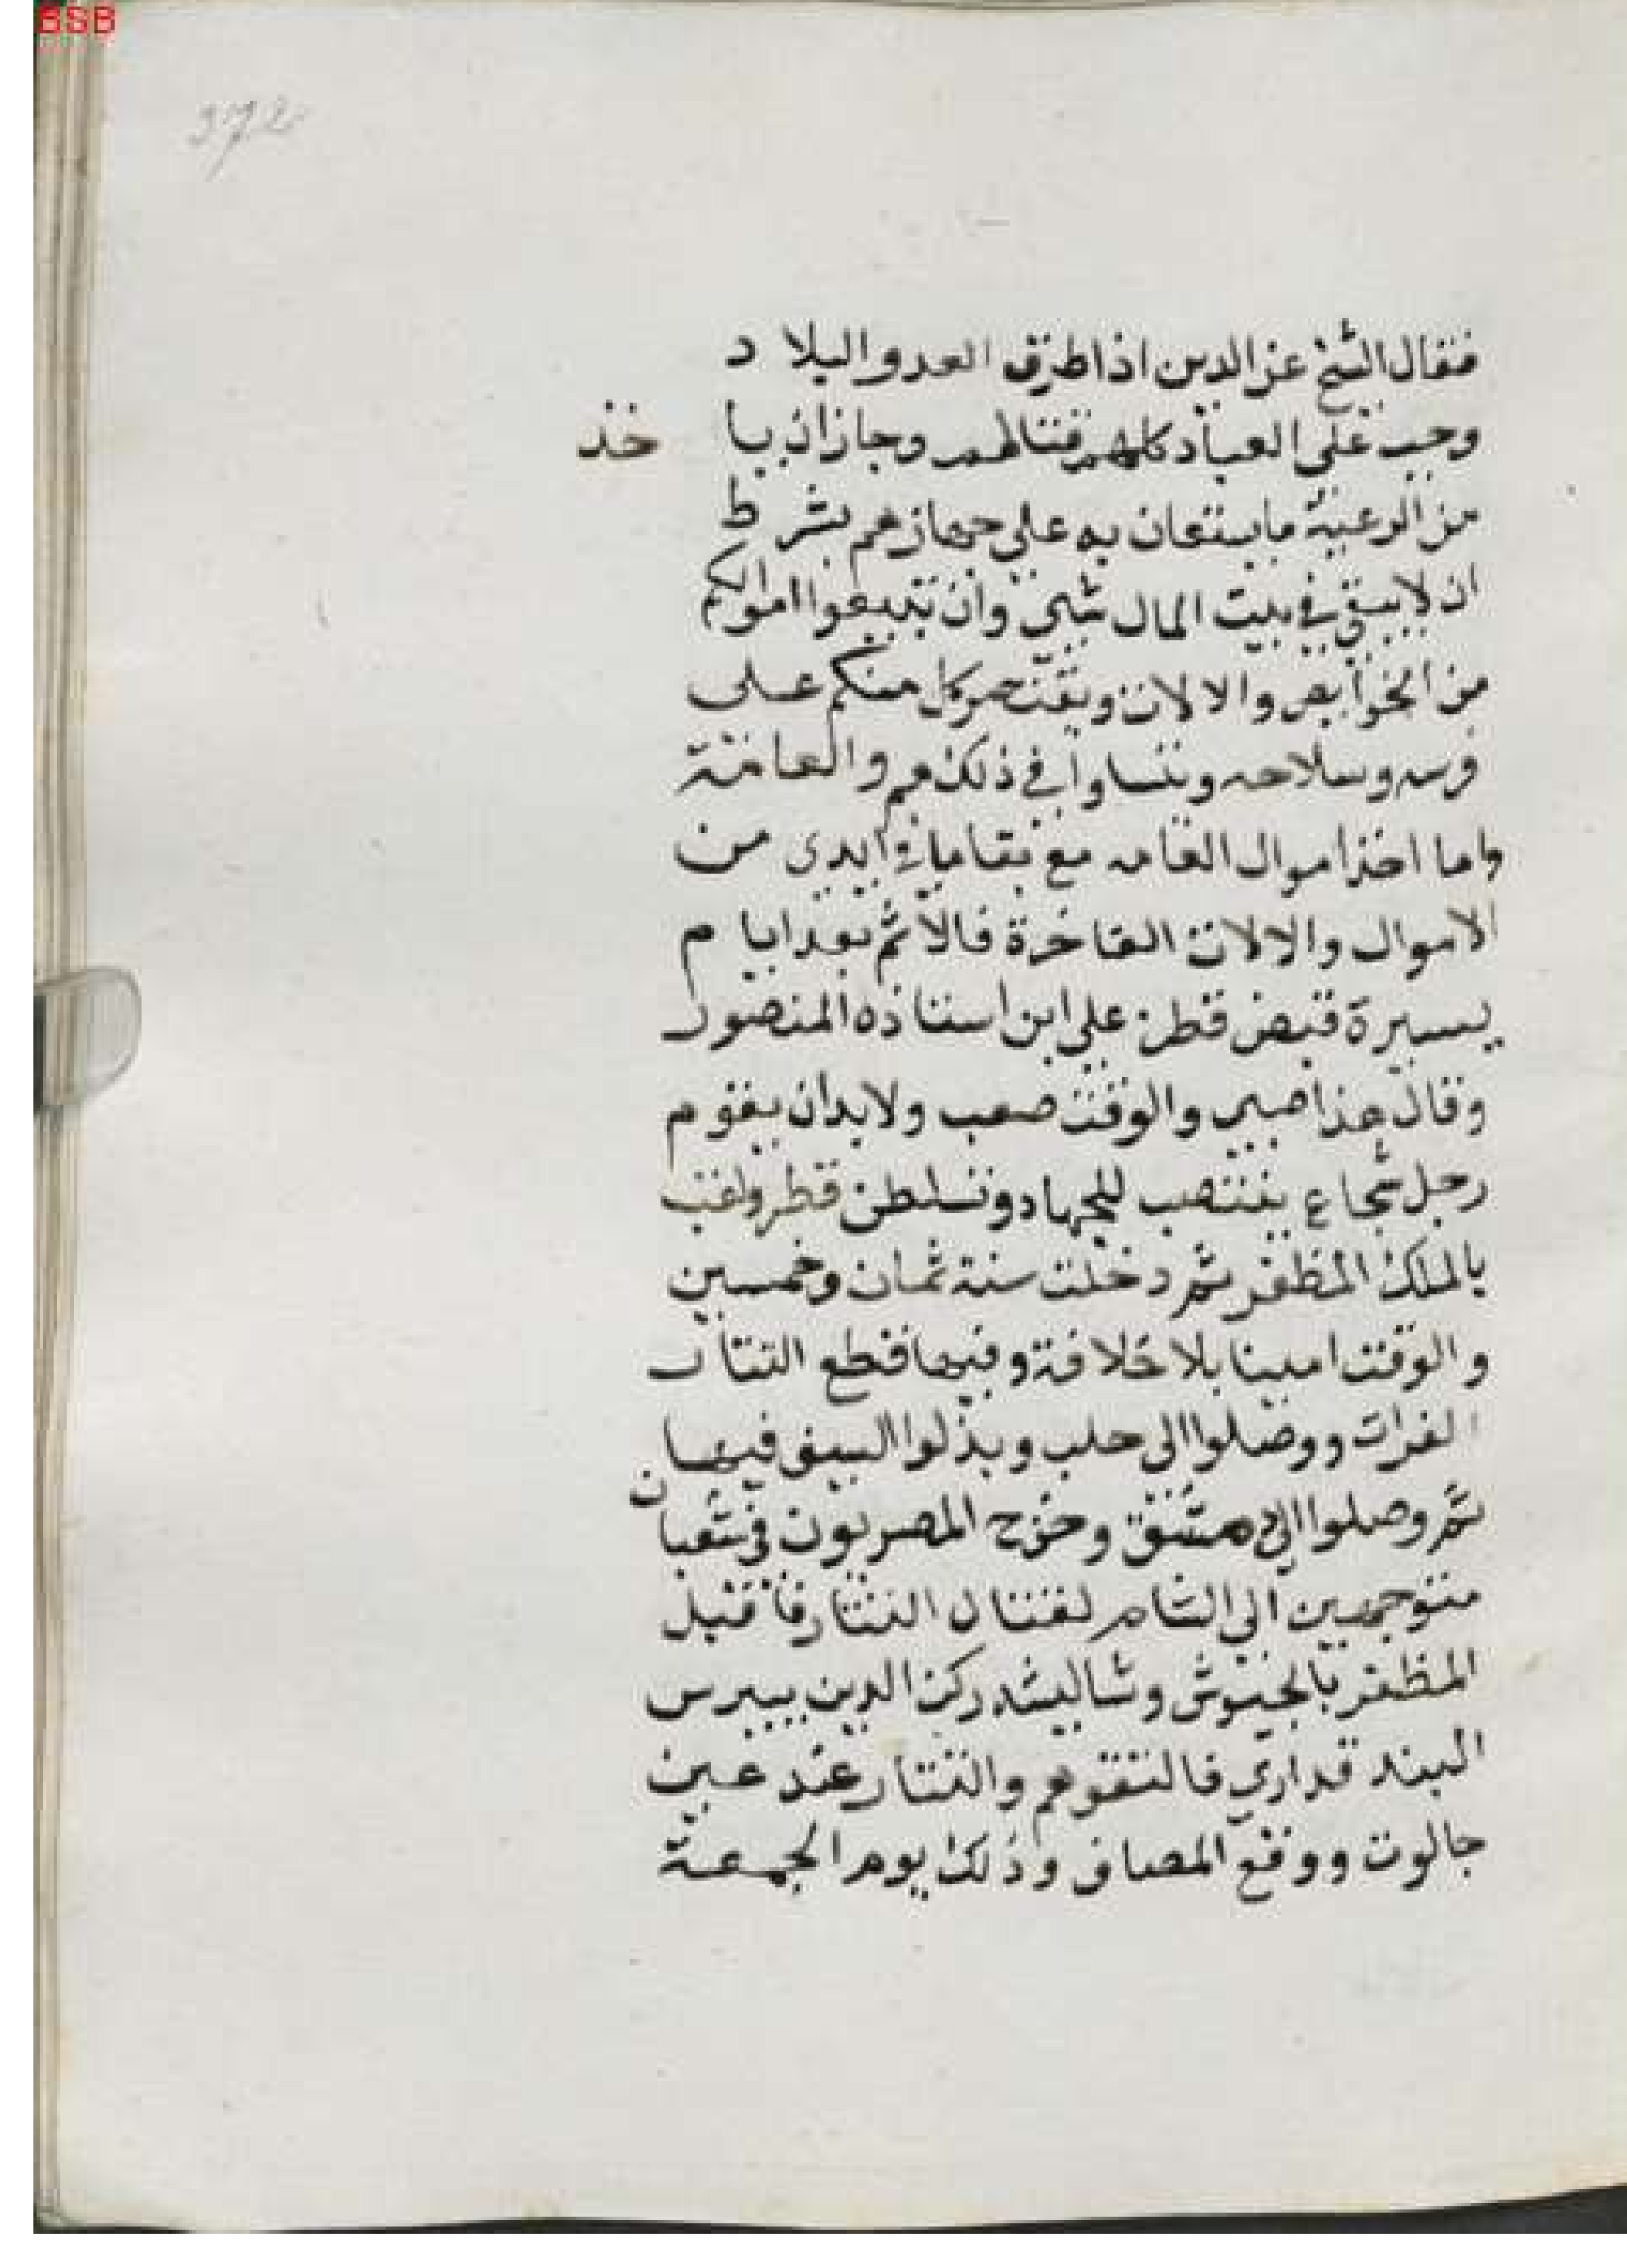 BSB
372
فقال الشيخ عز الدين اذا طرق العدو البلاد
وجب على العباد كلهم قتالهم وجاز ان ياخذ
من الرعية ما يستعان به على جهازهم بشرط
ان لا يبقى في بيت المال شي وان تبيعوا اموالكم
من الخوايص والالات ويقتصر كل منكم على
فرسه وسلاحه وتتساوا في ذلك هم والعامة
واما اخذ اموال العامه مع بقايا ايدي من
الاموال والالات الفاخرة فلا ثم بعد ايام
يسيرة قبض قطز على ابن استاذه المنصور
وقال هذا صبي والوقت صعب ولا بد ان يقوم
رجل شجاع ينتصب للجهاد وتسلطن قطز ولقب
بالملك المظفر ثم دخلت سنة ثمان وخمسين
والوقت ايضا بلا خلافة وفيها قطع التتار
الفرات ووصلوا الى حلب وبذلوا السيف فيها
ثم وصلوا الى دمشق وخرج المصريون في شعبان
متوجهين الى الشام لقتال التتار فاقبل
المظفر بالجيوش وشاليشه ركن الدين بيبرس
البندقداري فالتقوهم والتتار عند عين
جالوت ووقع المصاف وذلك يوم الجمعة